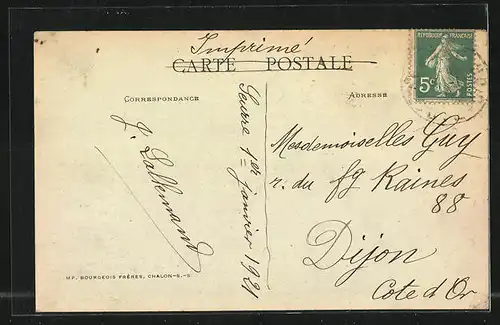 Imprimé
CARTE POSTALE
RÉPUBLIQUE FRANÇAISE
5c
POSTES
CORRESPONDANCE
ADRESSE
Seurre 1er janvier 1921
J. Lallemand
Mesdemoiselles Guy
r. du fg Raines
88
Dijon
Cote d'Or
IMP. BOURGEOIS FRÈRES, CHALON-S.-S.